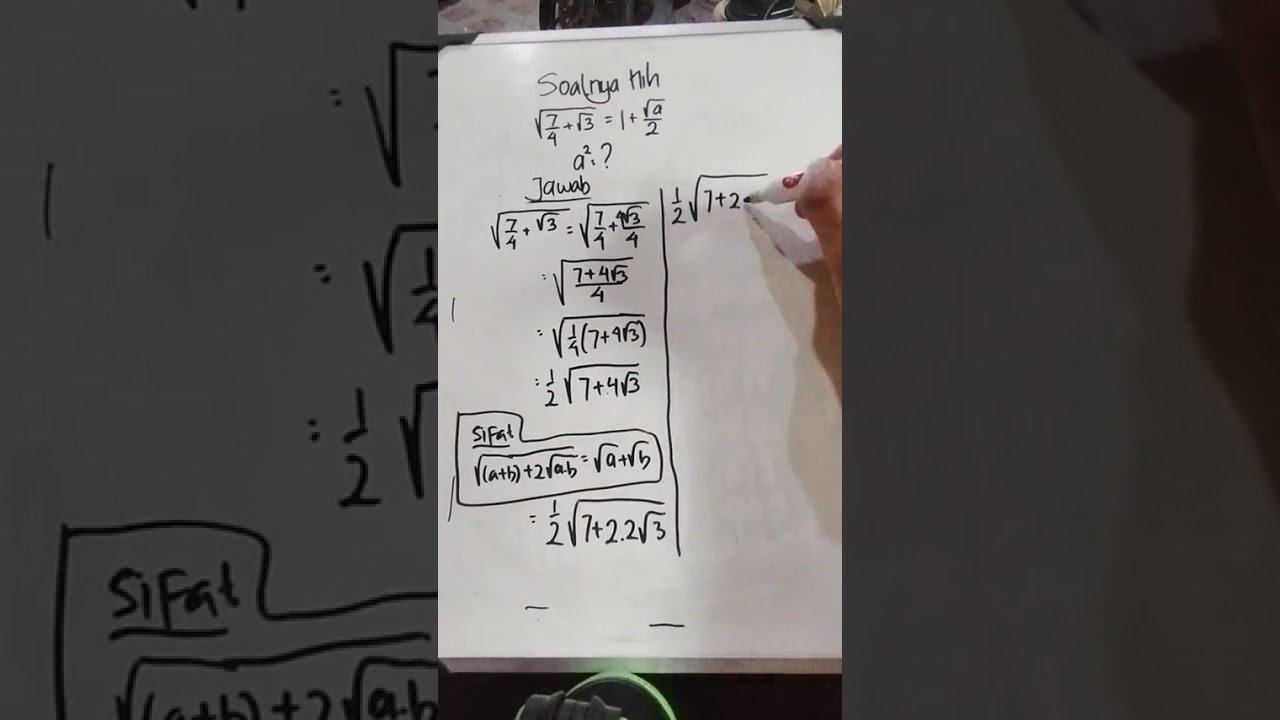 Soalnya Nih
√(7/4 + √3) = 1 + √a/2
a² = ?
Jawab
√(7/4 + √3) = √(7/4 + 4√3/4)
= √((7+4√3)/4)
= √(1/4(7+4√3))
= 1/2 √(7+4√3)
Sifat
√((a+b)+2√a.b) = √a+√b
= 1/2 √(7+2.2√3)
1/2 √(7+2